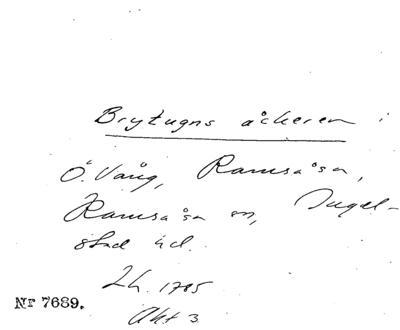 Brytugns åkeren i
Ö. Vång, Ramsåsa,
Ramsåsa sn, Ingel-
stad hd.
Lh. 1785
Akt 3
Nr 7689.